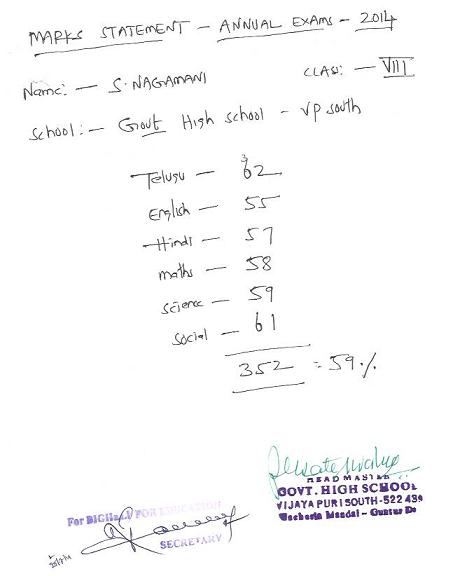 MARKS STATEMENT - ANNUAL EXAMS - 2014
Name: - S. NAGAMANI CLASS: - VIII
School: - Govt High school - VP South
Telugu - 62
English - 55
Hindi - 57
maths - 58
science - 59
social - 61
352 = 59.%
HEADMASTER
GOVT. HIGH SCHOOL
VIJAYAPURISOUTH-522 439
Macherla Mandal - Guntur Dt
FOR EDUCATION
SECRETARY